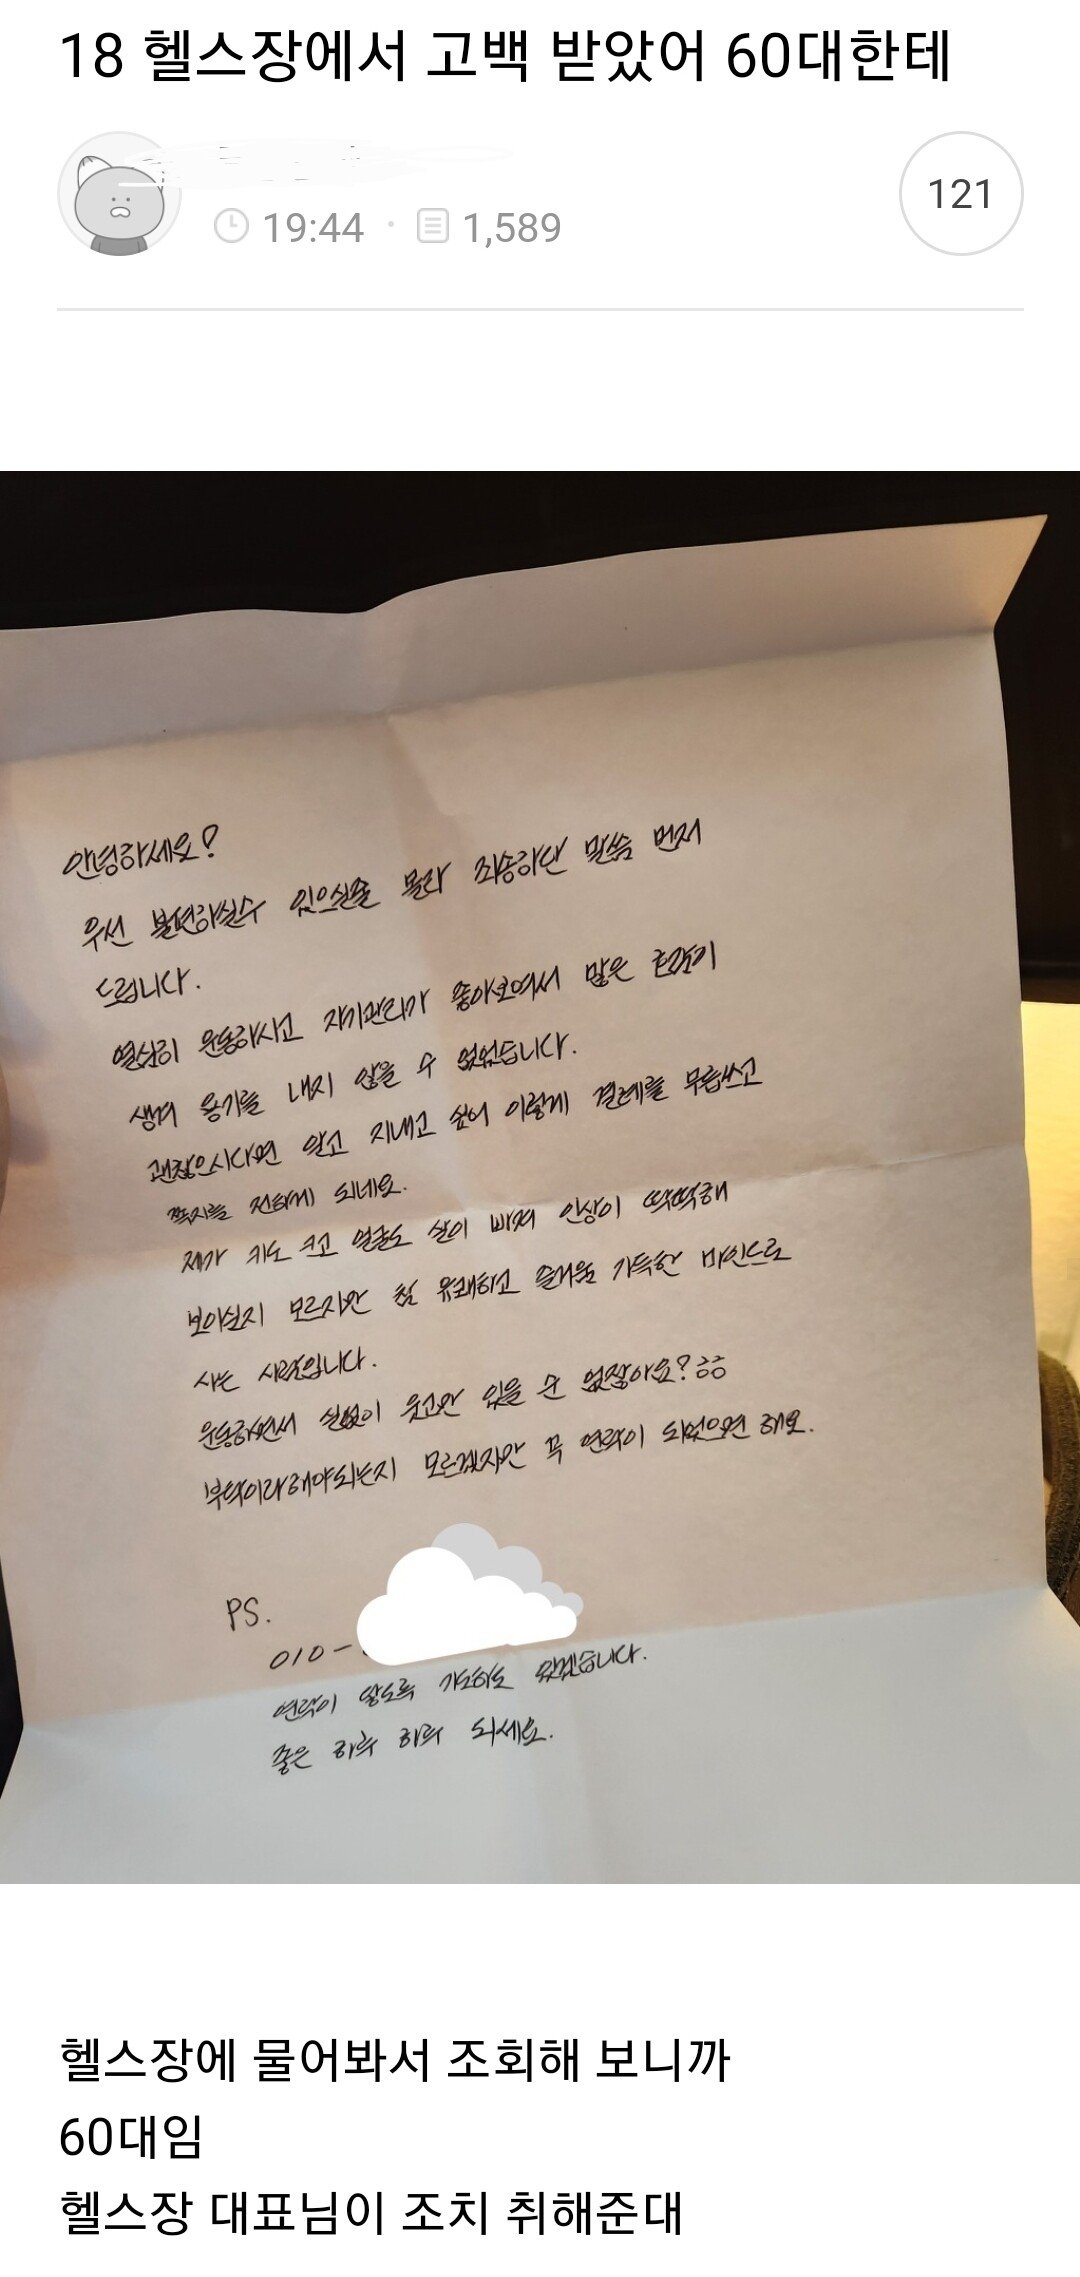 18 헬스장에서 고백 받았어 60대한테
19:44 · 1,589
121
안녕하세요!
우선 불편하실수 있으실줄 몰라 죄송하단 말씀 먼저
드립니다.
열심히 운동하시고 자기관리가 좋아보여서 많은 호감이
생겨 용기를 내지 않을 수 없었습니다.
괜찮으시다면 알고 지내고 싶어 이렇게 결례를 무릅쓰고
쪽지를 전하게 되네요.
제가 키도 크고 얼굴도 살이 빠져 인상이 딱딱해
보이실지 모르지만 참 유쾌하고 즐거움 가득한 마인드로
사는 사람입니다.
운동하면서 실없이 웃고만 있을 순 없잖아요? ㅎㅎ
부탁이라해야되는지 모르겠지만 꼭 연락이 되었으면 해요.
PS.
010-
연락이 닿도록 기도하도 있겠습니다.
좋은 하루 하루 되세요.
헬스장에 물어봐서 조회해 보니까
60대임
헬스장 대표님이 조치 취해준대